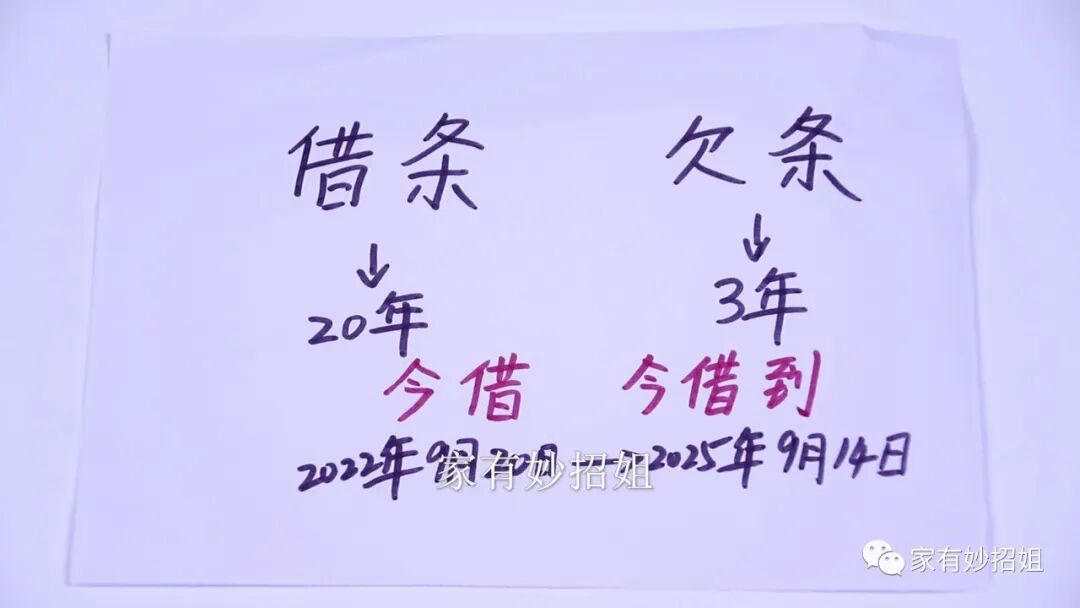 借条 欠条
↓ ↓
20年 3年
今借 今借到
2022年9月20日——2025年9月14日
家有妙招姐
家有妙招姐